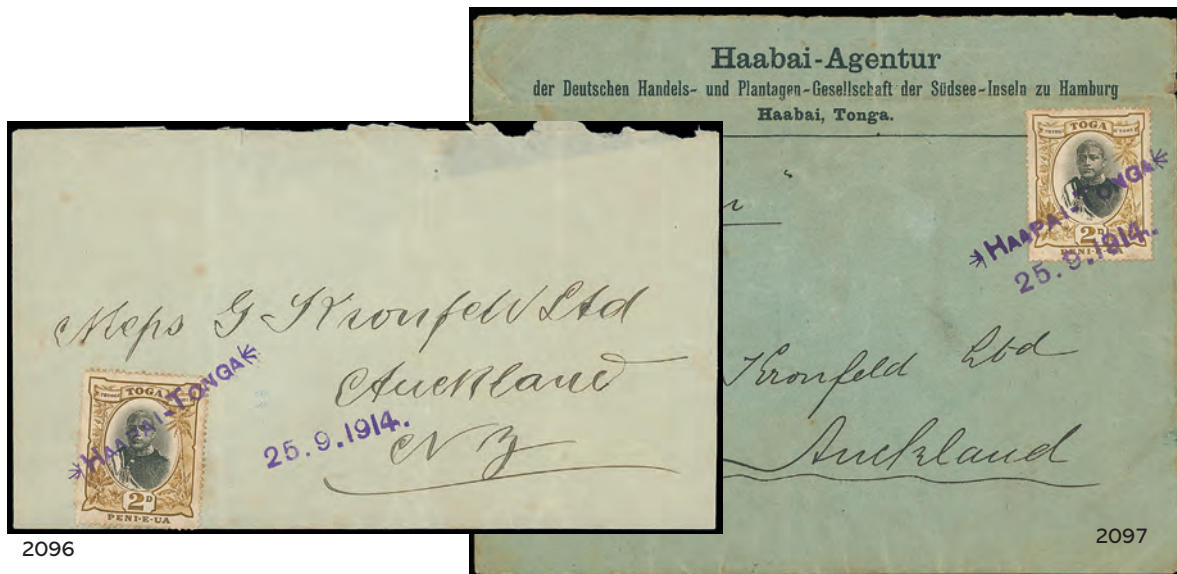 Haabai-Agentur
der Deutschen Handels- und Plantagen-Gesellschaft der Südsee-Inseln zu Hamburg
Haabai, Tonga.
TOGA
HAAPAI-TONGA
25.9.1914.
2D
PENI-E-UA
Kronfeld Ltd
Auckland
2097
Messrs G Kronfeld Ltd
Auckland
NZ
TOGA
HAAPAI-TONGA
25.9.1914.
2D
PENI-E-UA
2096